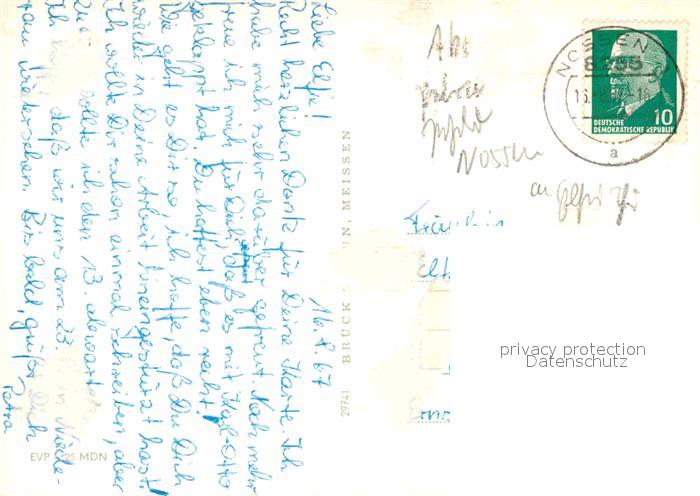 16.8.67
Liebe Elfie!
Recht herzlichen Dank für Deine Karte. Ich
habe mich sehr darüber gefreut. Noch mehr
freue ich mich für Dich, daß es mit Karl-Otto
geklappt hat. Du hattest eben recht!
Wie geht es Dir so, ich hoffe, daß Du Dich
wieder in Deine Arbeit hineingestürzt hast.
Ich wollte Dir schon einmal schreiben, aber
sollte ich den 13. abwarten.
Ich hoffe, daß wir uns am 23. in Niede-
rau wiedersehen. Bis bald, grüßt Dich
Petra
EVP 0,25 MDN
29741 BRÜCK N, MEISSEN
NOSSEN
8255
16.
a
10
DEUTSCHE
DEMOKRATISCHE REPUBLIK
Nossen
Fräulein
privacy protection
Datenschutz